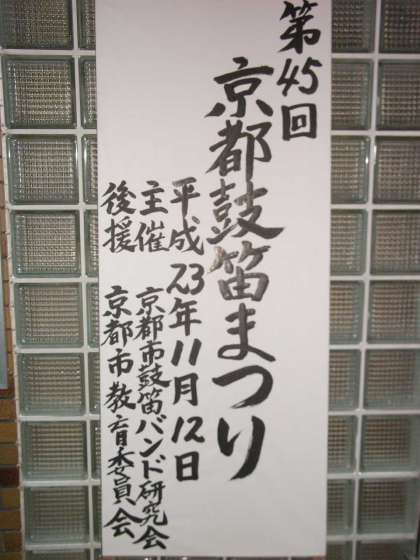 第45回
京都鼓笛まつり
平成23年11月12日
主催 京都市鼓笛バンド研究会
後援 京都市教育委員会